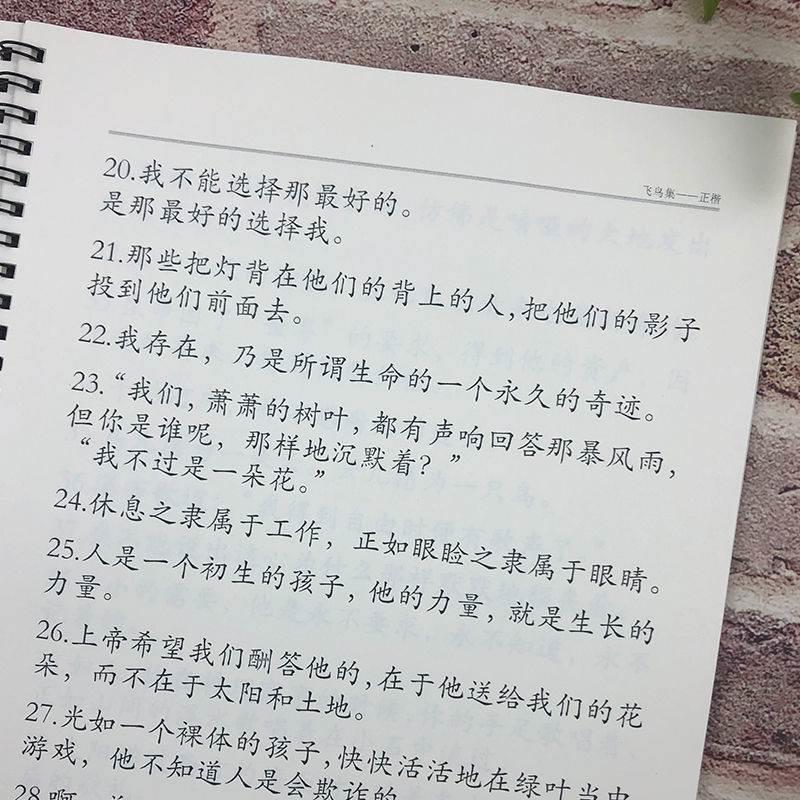 飞鸟集——正楷
20.我不能选择那最好的。
是那最好的选择我。
21.那些把灯背在他们的背上的人,把他们的影子
投到他们前面去。
22.我存在，乃是所谓生命的一个永久的奇迹。
23.“我们，萧萧的树叶，都有声响回答那暴风雨，
但你是谁呢，那样地沉默着？”
“我不过是一朵花。”
24.休息之隶属于工作，正如眼睑之隶属于眼睛。
25.人是一个初生的孩子，他的力量，就是生长的
力量。
26.上帝希望我们酬答他的,在于他送给我们的花
朵，而不在于太阳和土地。
27.光如一个裸体的孩子,快快活活地在绿叶当中
游戏，他不知道人是会欺诈的
28.啊